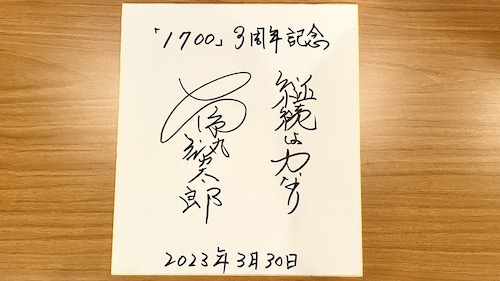 「1700」3周年記念
継続は力なり
2023年3月30日